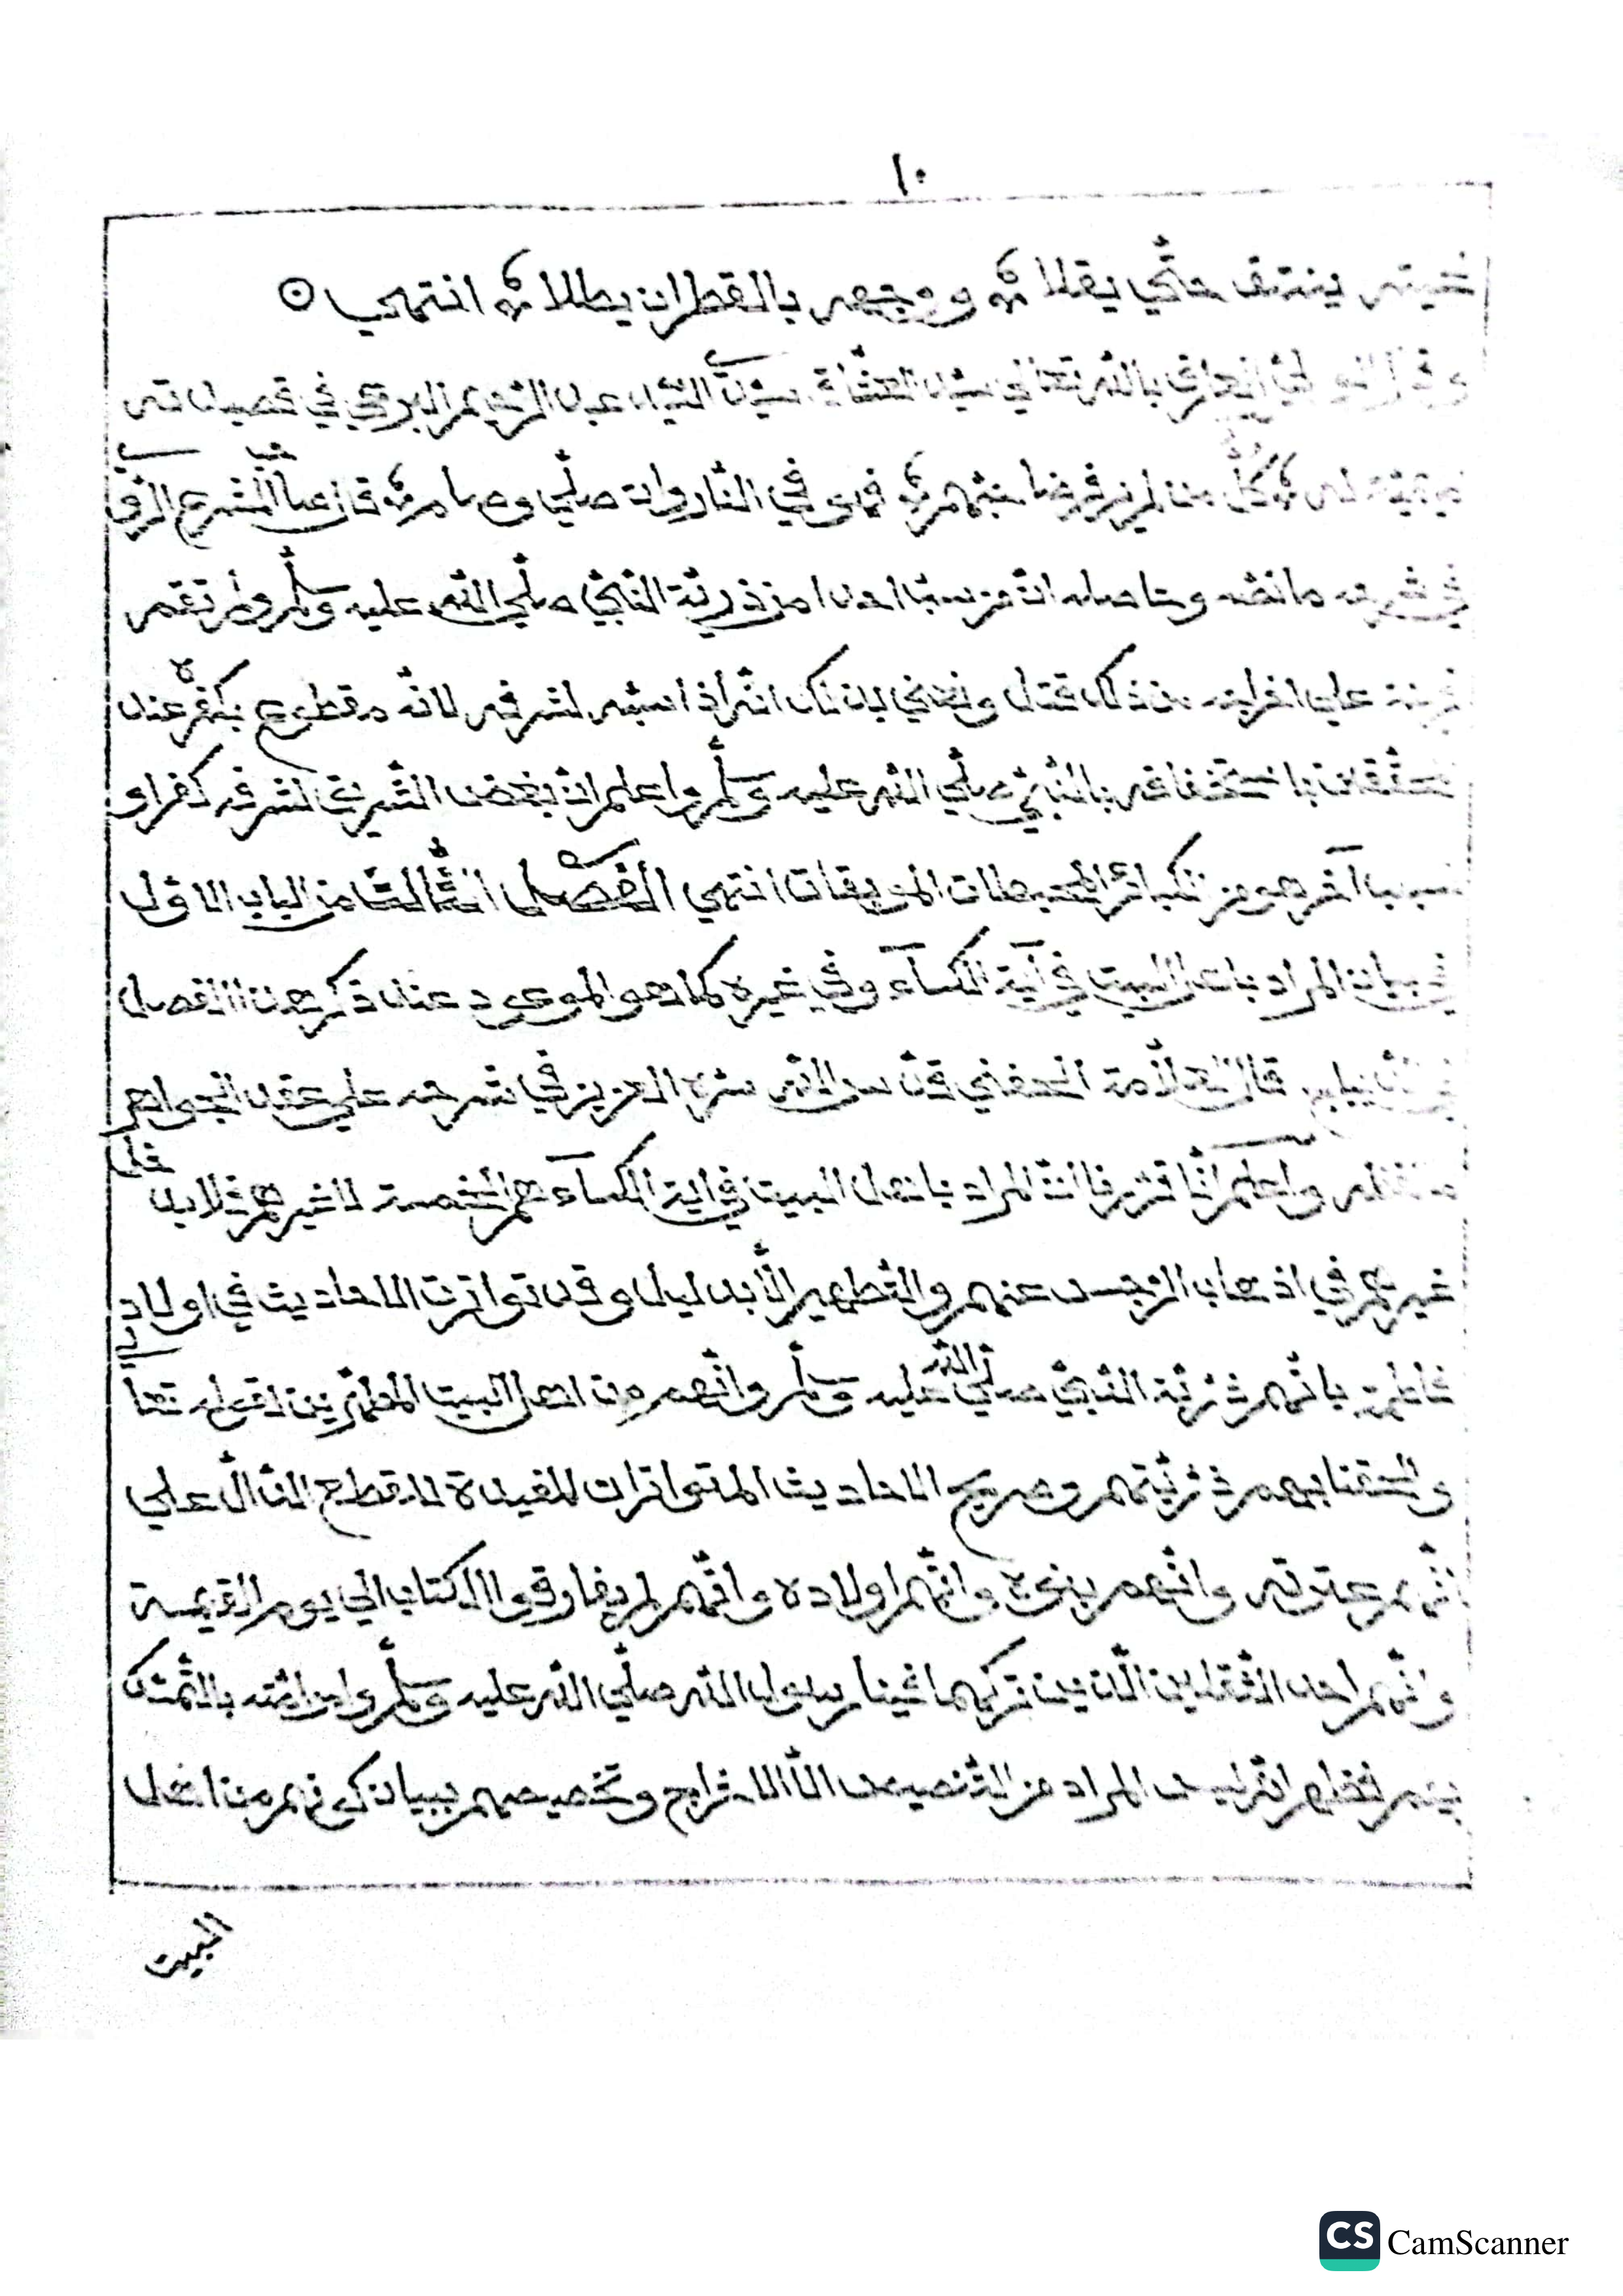 ١٠
ينتف حتي يقلا ؞ ووجهه بالقطران يطلا ؞ انتهي
وقال العارف بالله تعالي السيد عبد الرحيم البرعي في قصيدته
؞ وكل من لم ير فرضا حبهم ؞ فهو في النار وان صلي وصاما ؞ قال
في شرحه ما نصه وحاصله ان من سب احدا من ذرية النبي صلي الله عليه وسلم ولم تقم
قرينة علي اخراجه من ذلك قتل لشرفه لانه مقطوع بكفره عند
باستخفافه بالنبي صلي الله عليه وسلم واعلم ان بغض الشريف لشرفه كفر او
لسبب آخر هو من الكبائر المحبطات الموبقات انتهي الفصل الثالث من الباب الاول
في بيان المراد باهل البيت في آية الكسآء وفي غيره كما هو الموعود عند ذكر هذا الفصل
قال العلامة الحفني قدس الله سره العزيز في شرحه علي عقد الجواهر
واعلم انا قررنا ان المراد باهل البيت في اية الكسآء هم الخمسة لا غيرهم فلا يدخل
غيرهم في اذهاب الرجس عنهم والتطهير الا بدليل وقد تواترت الاحاديث في اولاد
فاطمة بانهم ذرية النبي صلي الله عليه وسلم وانهم من اهل البيت المطهرين لقوله تعالي
والحقنا بهم ذريتهم وصريح الاحاديث المتواترات المفيدة للقطع الدال علي
انهم عترته وانهم بنوه وانهم اولاده وانهم لم يفارقوا الكتاب الي يوم القيمة
وانهم احد الثقلين الذين تركهما فينا رسول الله صلي الله عليه وسلم وامر امته بالتمسك
بهم فظهر انه ليس المراد من التنصيص الا الادراج وتخصيصهم ببيان كونهم من اهل
البيت
CS CamScanner